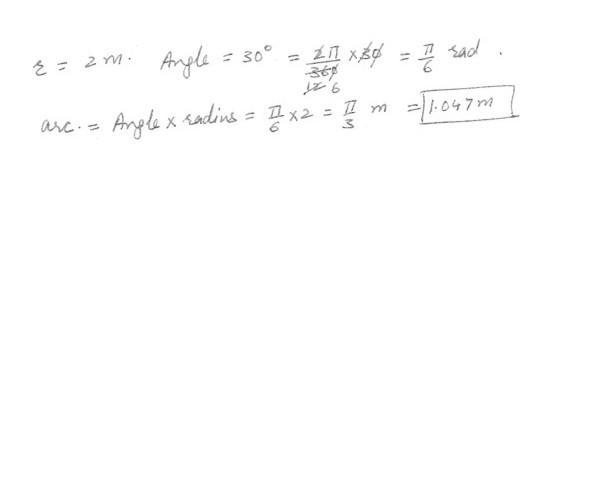 r = 2 m. Angle = 30° = 2π/360 12 6 × 30 = π/6 rad.
arc. = Angle × radius = π/6 × 2 = π/3 m = 1.047 m